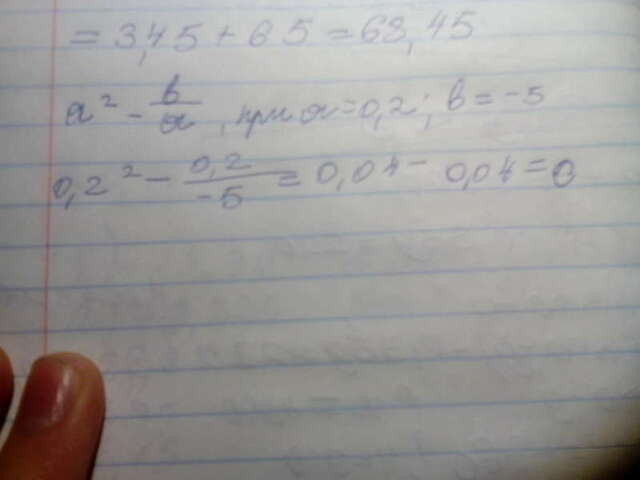 = 3,45 + 65 = 68,45
a² - b/a, при a = 0,2; b = -5
0,2² - 0,2/-5 = 0,04 - 0,04 = 0